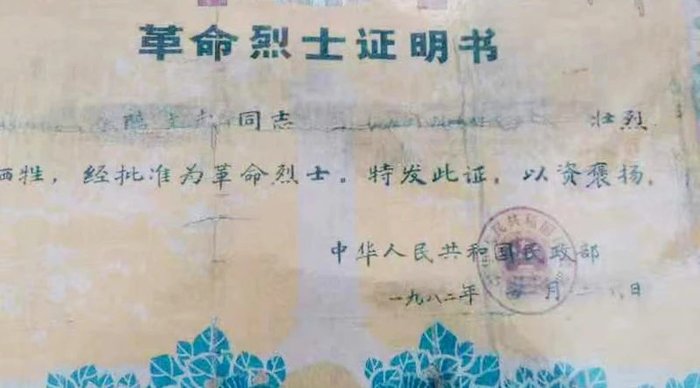 革命烈士证明书
同志 壮烈
牺牲，经批准为革命烈士。特发此证，以资褒扬。
中华人民共和国民政部
一九八二年 月 日